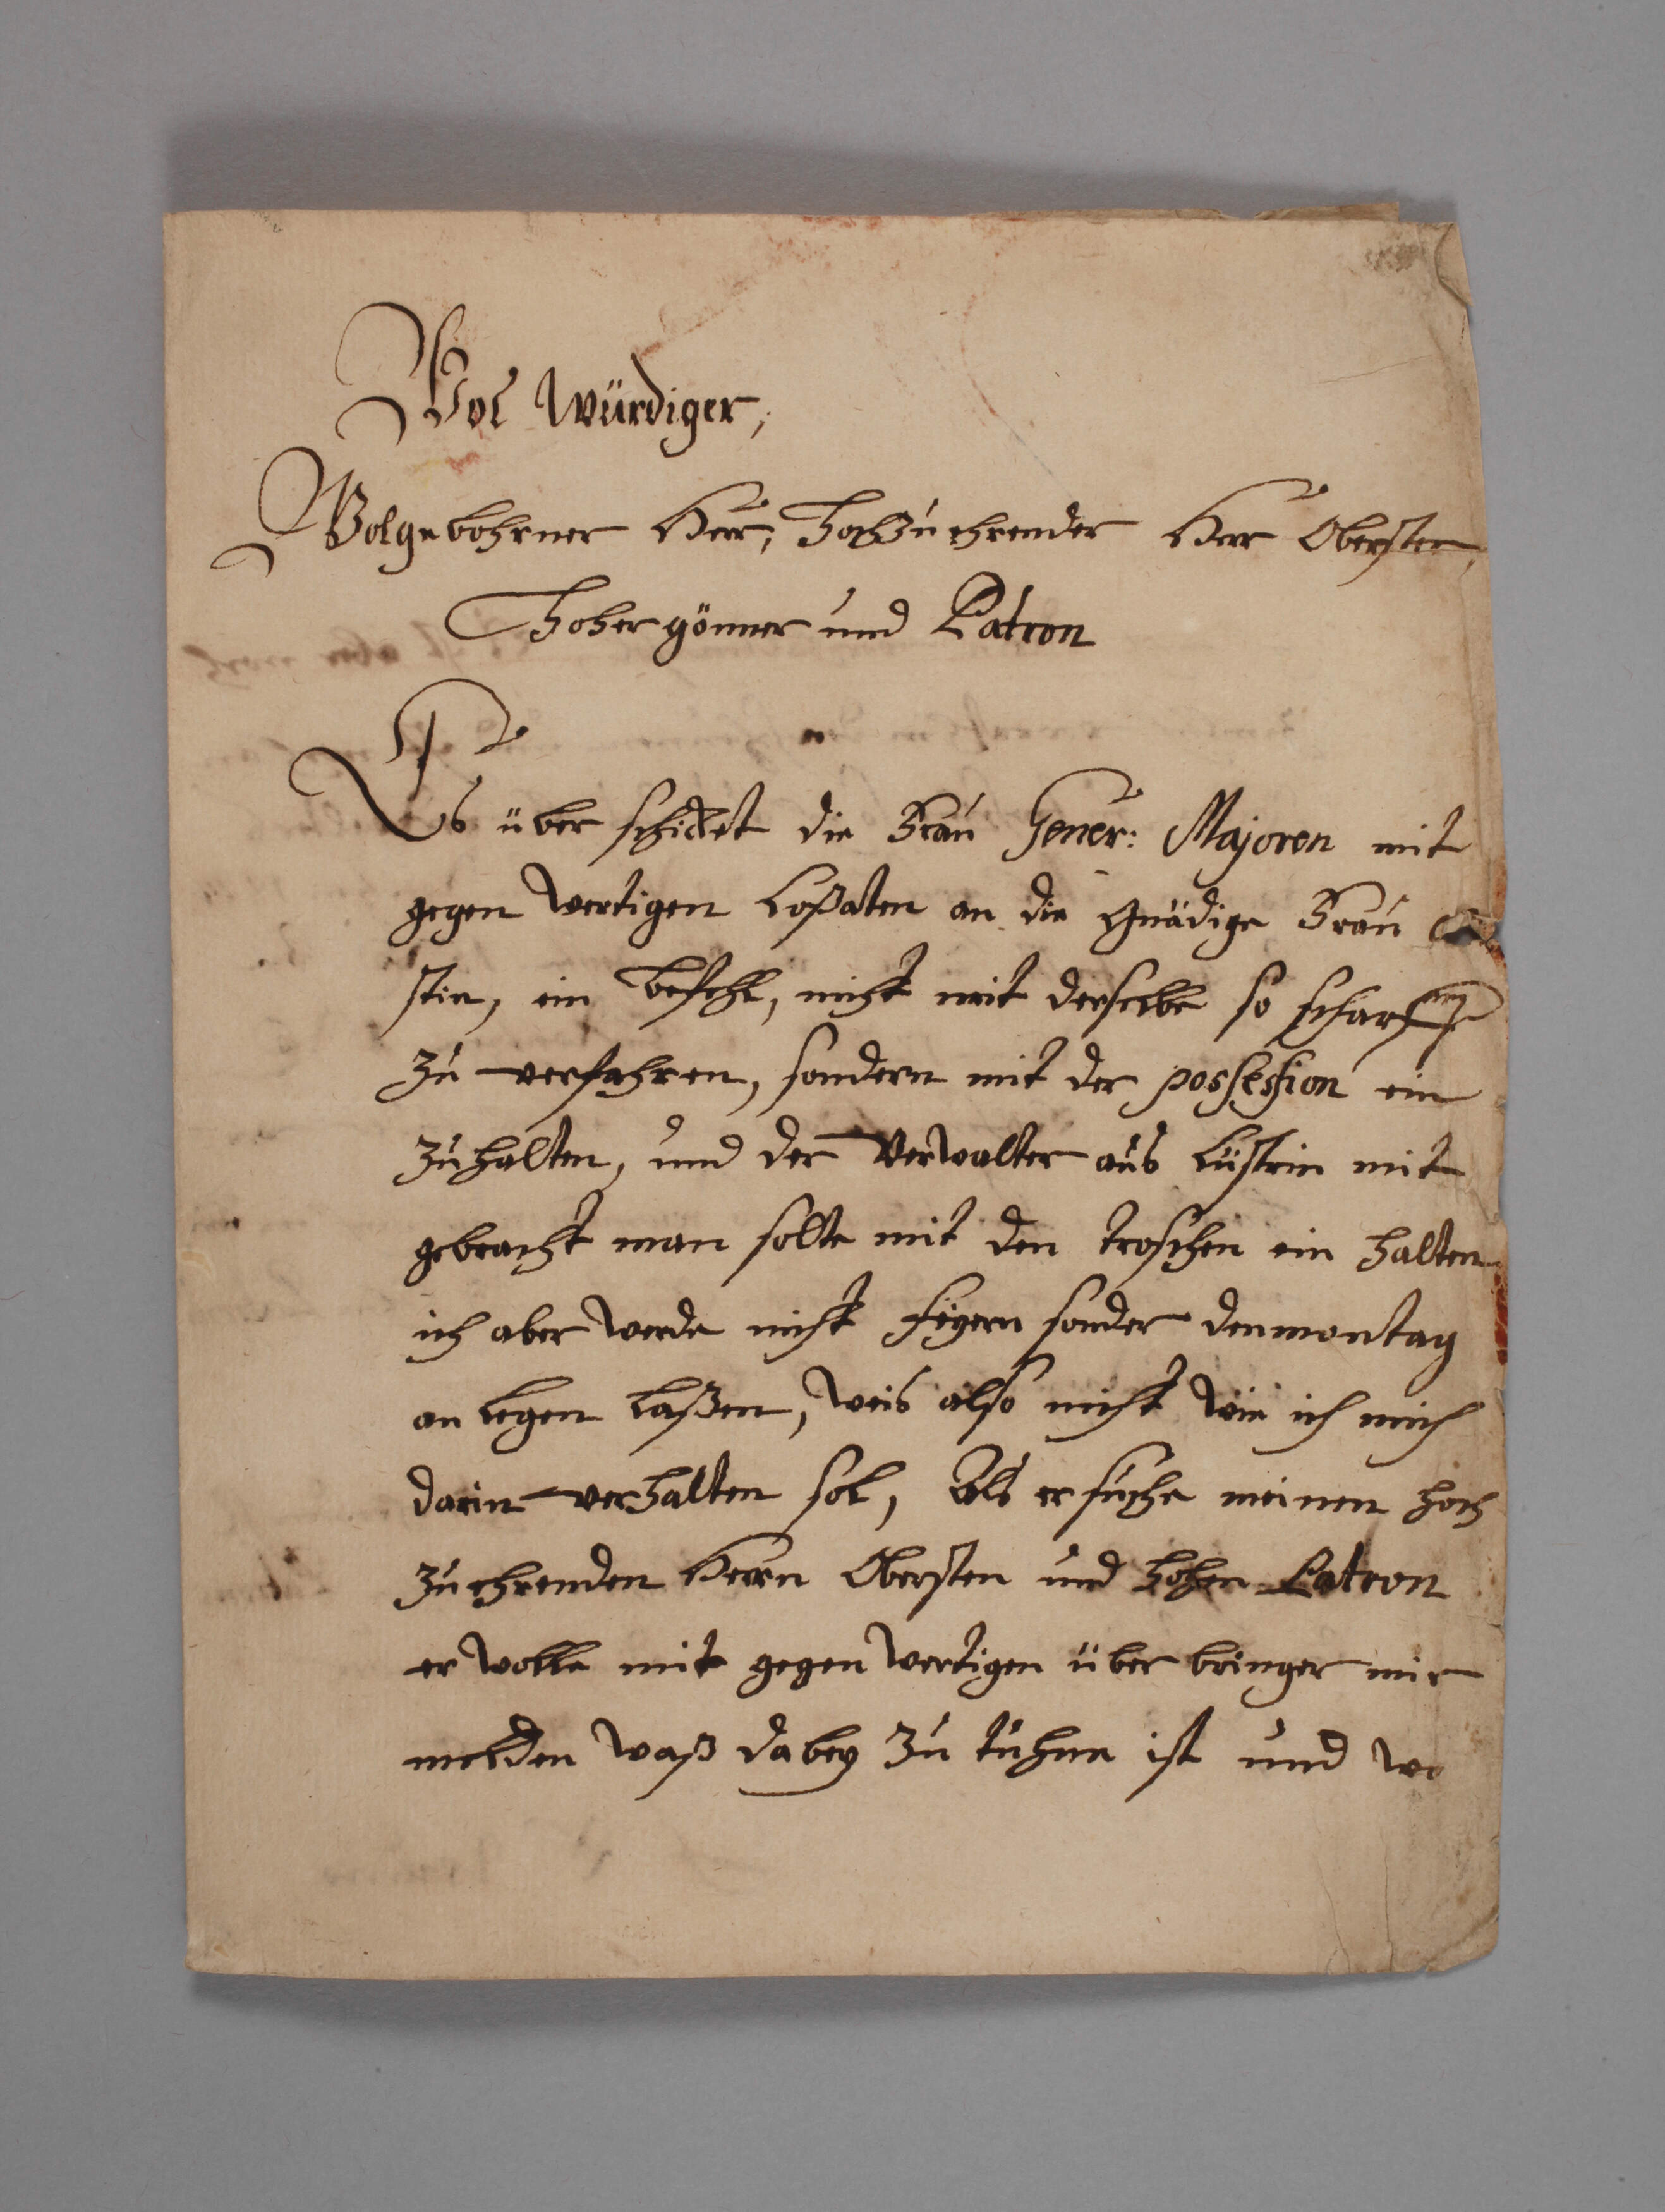 Wol würdiger,
Wolgebohrner Herr, Hochzuehrender Herr Obrister,
Hoher gönner und Patron
Es über schicket die Frau Gener: Majoren mit
gegen wertigen Loßaten an die gnädige Frau
stin, ein befehl, nicht mit derselbe so scharff
zu verfahren, sondern mit der possession ein
zuhalten, und der Verwalter aus Cüstrin mit
gebracht man solte mit den troschen ein halten
ich aber werde nicht feyern sonder den montag
an legen laßen, weis also nicht wie ich mich
darin verhalten sol, Als ersuche meinen hoch
zuehrenden Herrn Obersten und hohen Patron
er wolle mit gegen wertigen über bringer mir
melden waß dabey zu tuhne ist und wo